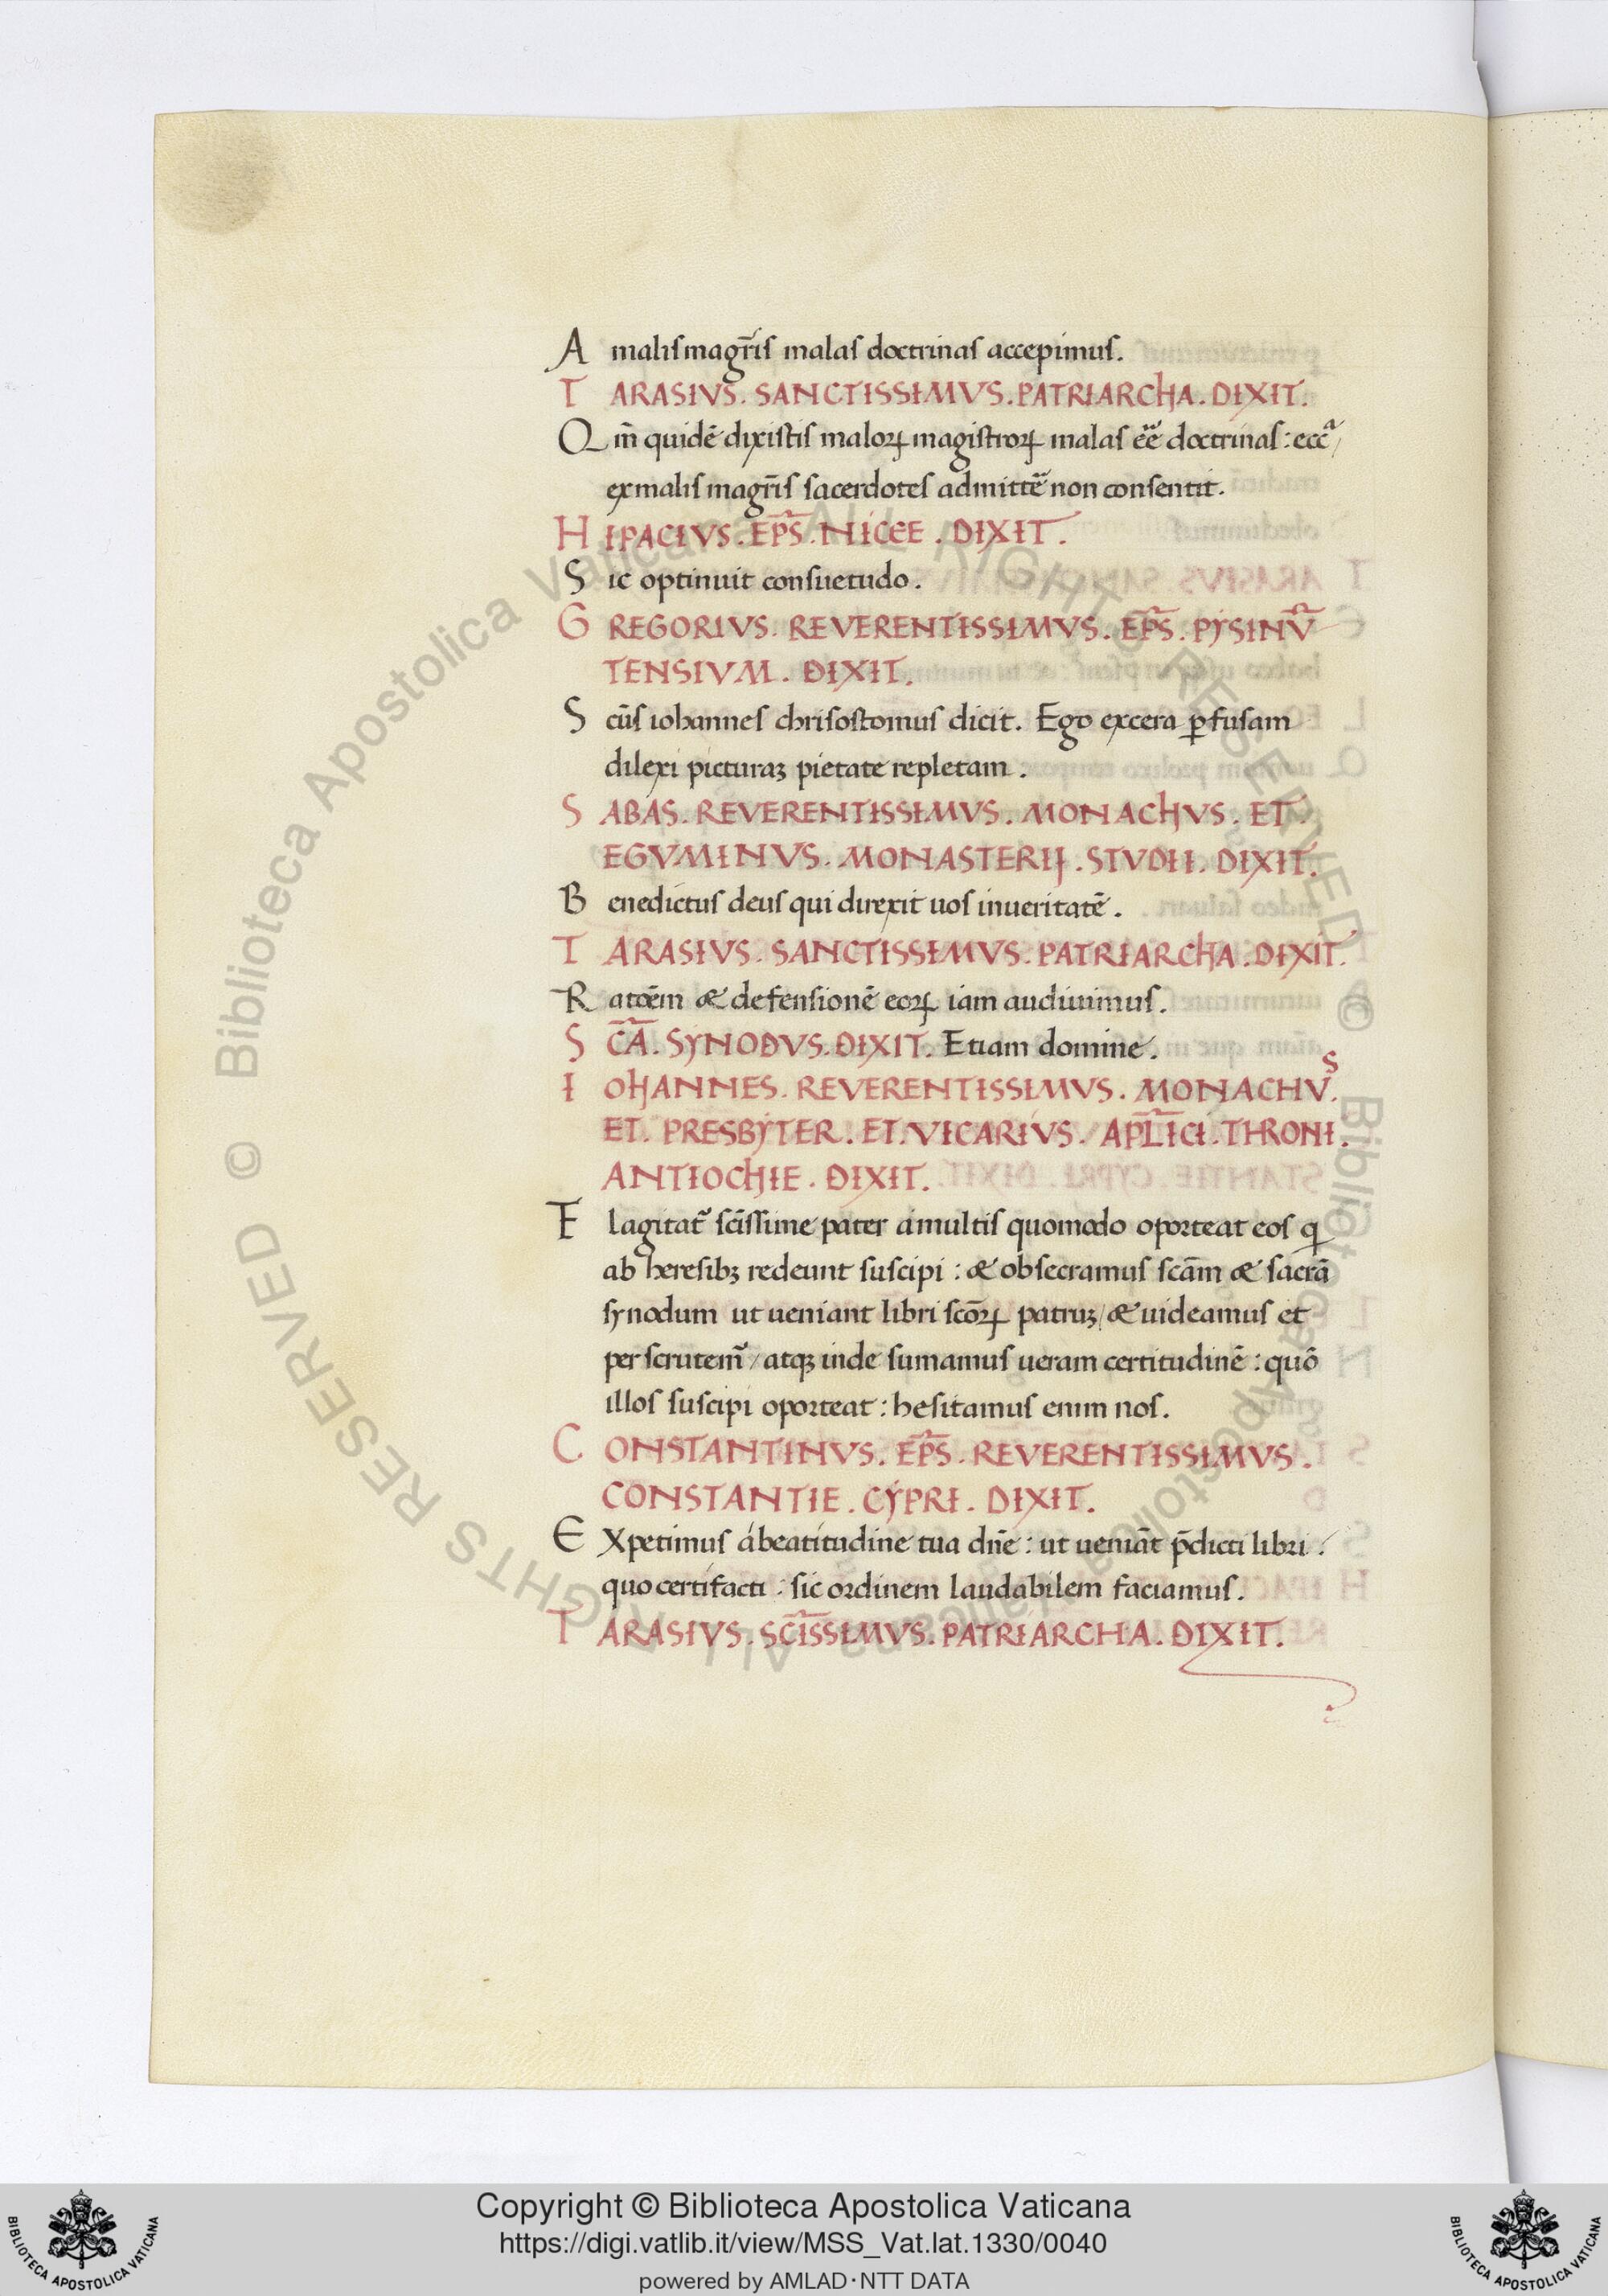 A malis magr̄is malas doctrinas accepimus.
TARASIVS. SANCTISSIMVS. PATRIARChA. DIXIT.
Qm̄ quidē dixistis maloꝝ magistroꝝ malas eē doctrinas: eccᵃ/
ex malis magr̄is sacerdotes admittē non consentit.
HIPACIVS. EPS̄. NICEE. DIXIT.
Sic optinuit consuetudo.
GREGORIVS. REVERENTISSIMVS. EPS̄. PYSINV̄
TENSIVM. DIXIT.
Scūs iohannes chrisostomus dicit. Ego ex cera ꝑfusam
dilexi picturaꝫ pietate repletam.
SABAS. REVERENTISSIMVS. MONAChVS. ET.
EGVMINVS. MONASTERIJ. STVDII. DIXIT.
Benedictus deus qui direxit uos in ueritatē.
TARASIVS. SANCTISSIMVS. PATRIARChA. DIXIT.
Ratōem & defensionē eoꝝ iam audiuimus.
SCĀ. SYNODVS. DIXIT. Etiam domine.
IOHANNES. REVERENTISSIMVS. MONACHVS.
ET. PRESBYTER. ET. VICARIVS. APL̄ICI. THRONI.
ANTIOChIE. DIXIT.
Flagitat᷑ scīssime pater a multis quomodo oporteat eos q
ab heresibꝫ redeunt suscipi: & obsecramus scām & sacrā
synodum ut ueniant libri scōꝝ patruꝫ/ & uideamus et
perscrutem᷑/ atqꝫ inde sumamus ueram certitudinē: quō
illos suscipi oporteat: hesitamus enim nos.
CONSTANTINVS. EPS̄. REVERENTISSIMVS.
CONSTANTIE. CYPRI. DIXIT.
EXpetimus a beatitudine tua dn̄e: ut ueniāt p̄dicti libri:
quo certifacti: sic ordinem laudabilem faciamus.
TARASIVS. SCĪSSIMVS. PATRIARCHA. DIXIT.
Copyright © Biblioteca Apostolica Vaticana
https://digi.vatlib.it/view/MSS_Vat.lat.1330/0040
powered by AMLAD·NTT DATA
BIBLIOTECA APOSTOLICA VATICANA
BIBLIOTECA APOSTOLICA VATICANA
© Biblioteca Apostolica Vaticana ALL RIGHTS RESERVED © Biblioteca Apostolica Vaticana ALL RIGHTS RESERVED